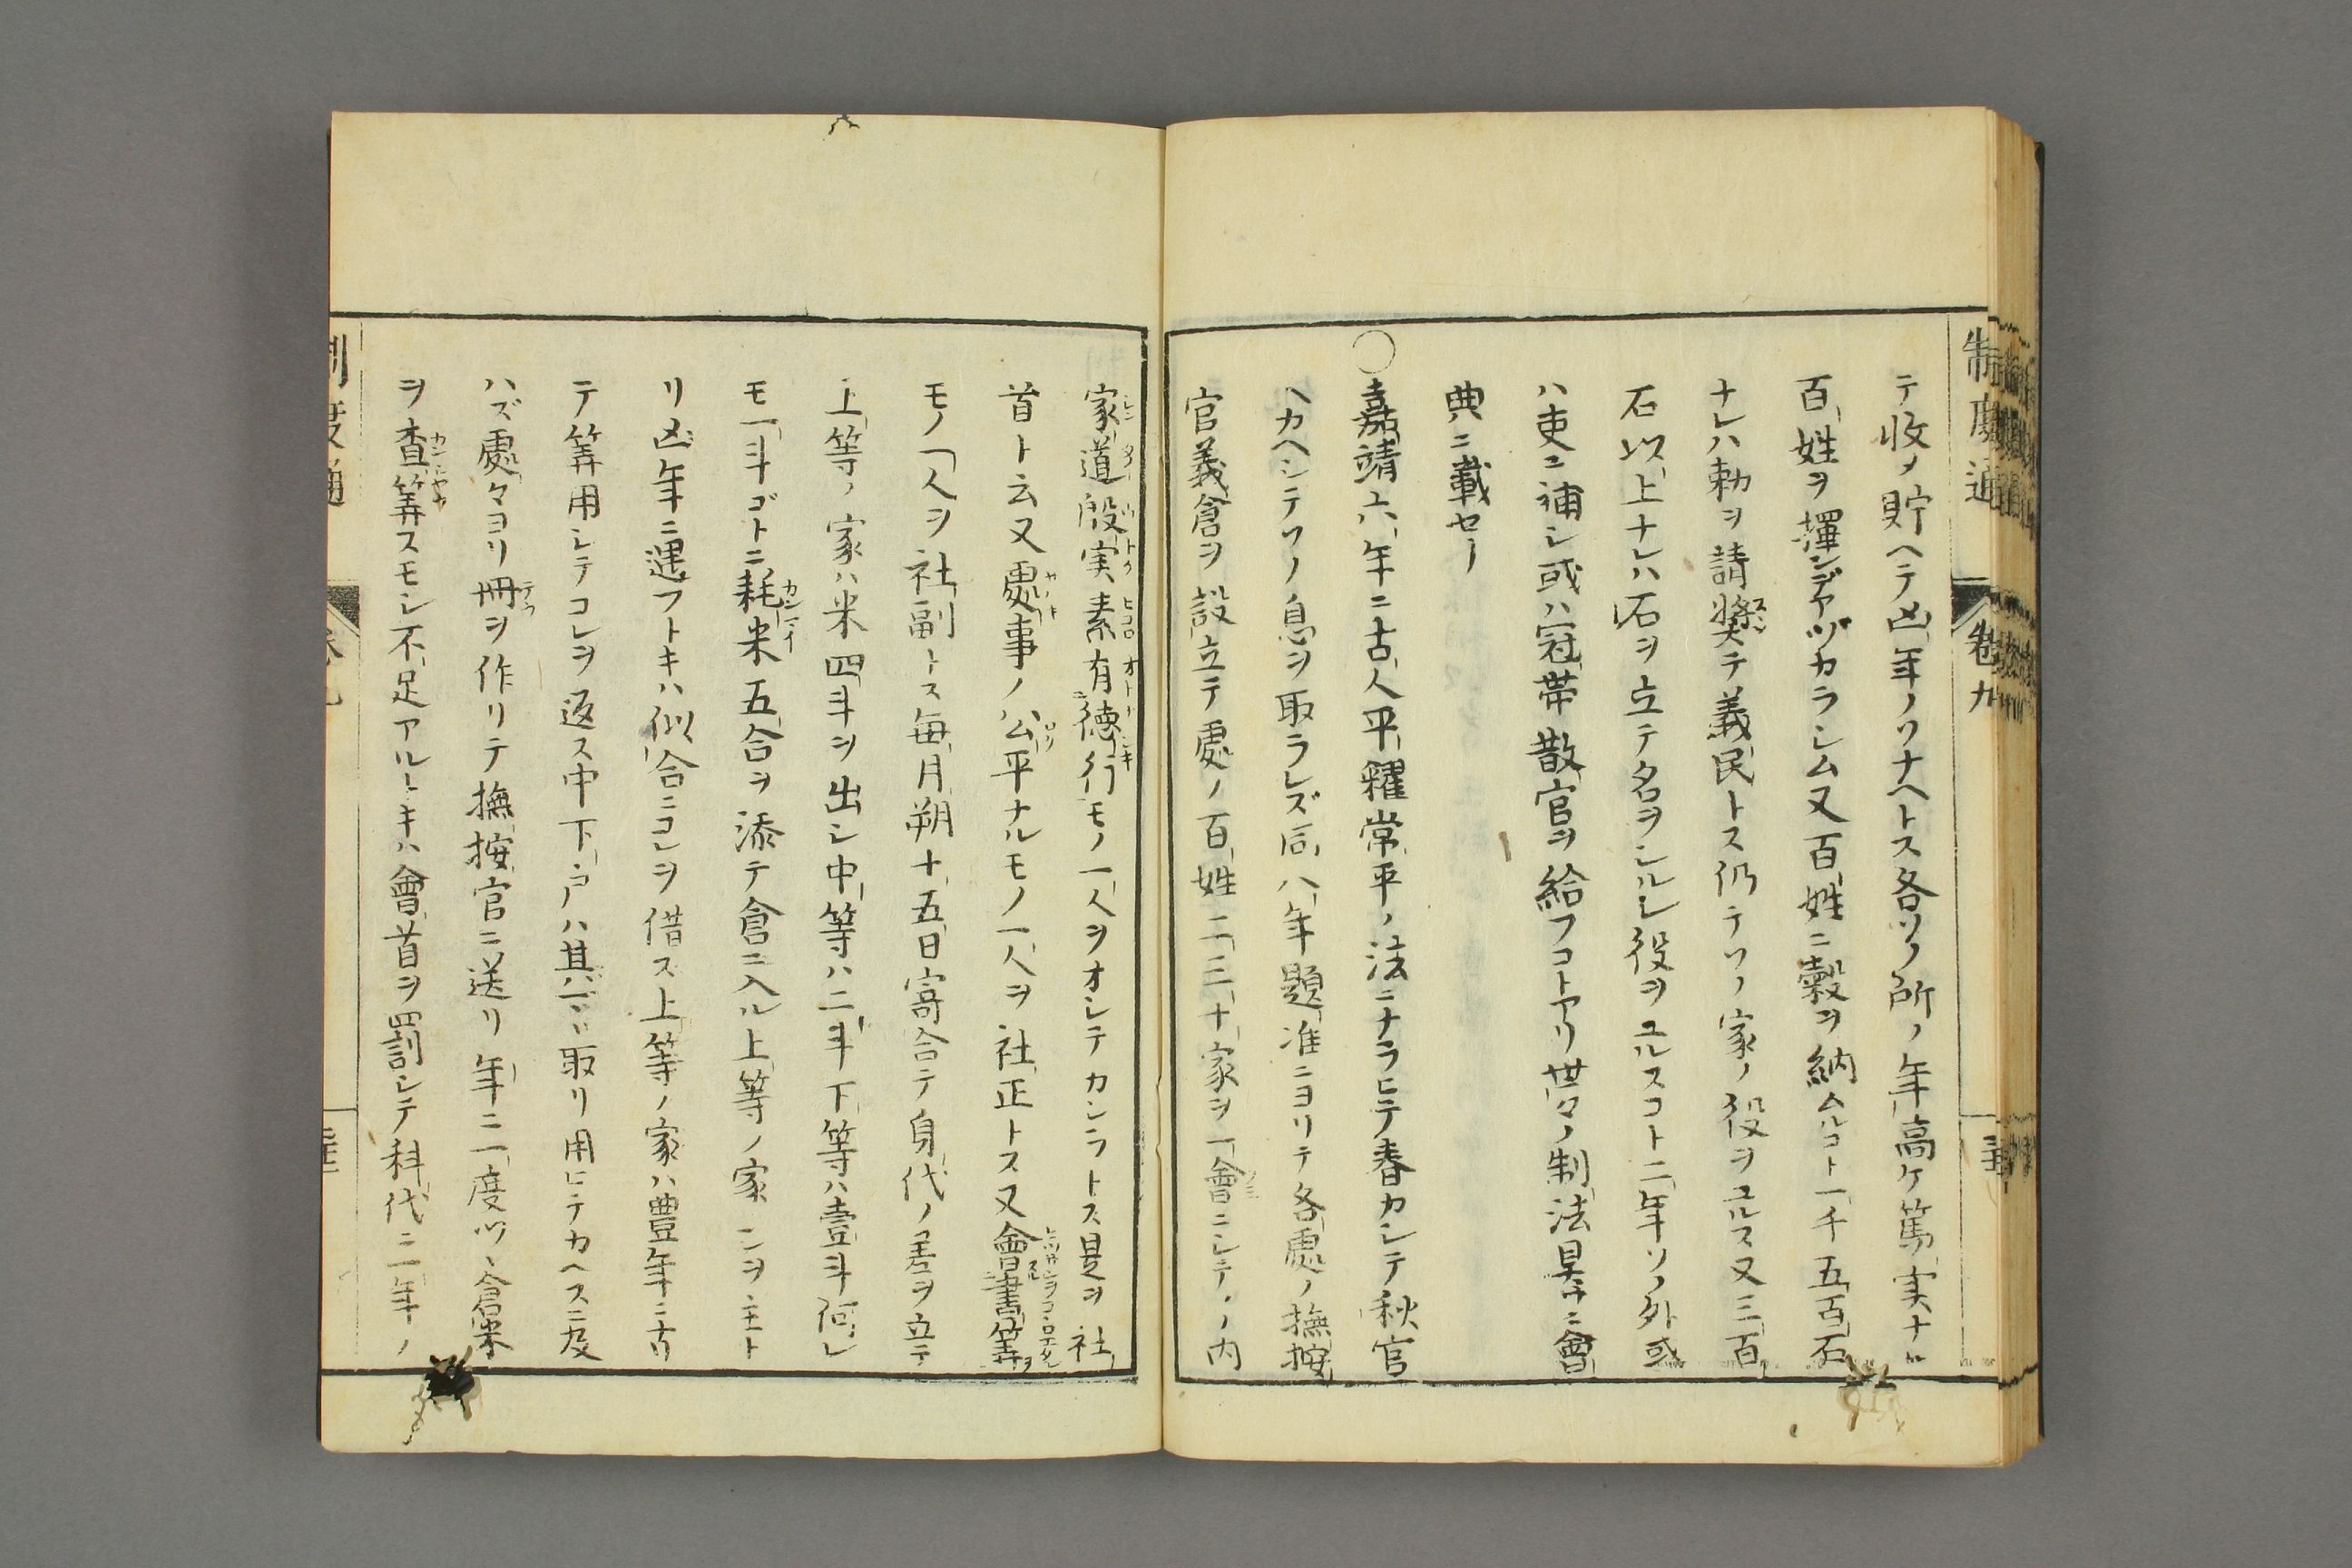 制度通 卷九
テ收メ貯ヘテ凶年ノソナヘトス各ソノ所ノ年高ケ篤実ナル
百姓ヲ擇ンデアヅカラシム又百姓ニ穀ヲ納ムルコト一千五百石
ナレハ勅ヲ請奬テ義民トス仍テソノ家ノ役ヲユルス又三百
石以上ナレハ石ヲ立テ名ヲシルシ役ヲユルスコト二年ソノ外或
ハ吏ニ補シ或ハ冠帯散官ヲ給フコトアリ世々ノ制法具ニ會
典ニ載セリ
○嘉靖六年ニ古人平糶常平ノ法ニナラヒテ春カシテ秋官
ヘカヘシテソノ息ヲ取ラレズ同八年題准ニヨリテ各處ノ撫按
官義倉ヲ設立テ處ノ百姓二三十家ヲ一會ニシテソノ内
家道殷実素有德行モノ一人ヲオシテカシラトス是ヲ社
首ト云又處事ノ公平ナルモノ一人ヲ社正トス又會書筭ヲ
モノ一人ヲ社副トス毎月朔十五日寄合テ身代ノ差ヲ立テ
上等ノ家ハ米四斗ヲ出シ中等ハ二斗下等ハ壹斗何レ
モ一斗ゴトニ耗米五合ヲ添テ倉ニ入ル上等ノ家コレヲ主ト
リ凶年ニ遇フトキハ似合ニコレヲ借ス上等ノ家ハ豊年ニナリ
テ筭用シテコレヲ返ス中下ノ戸ハ其ハ取リ用ヒテカヘスニ及
ハズ處々ヨリ冊ヲ作リテ撫按官ニ送リ年ニ一度ツヽ倉米
ヲ査筭スモシ不足アルトキハ會首ヲ罰シテ科代二年ノ